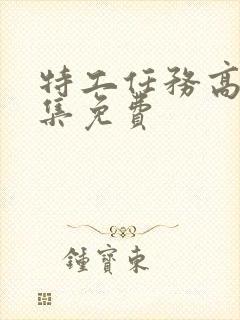 特工任务高
集免费
鍾寶東